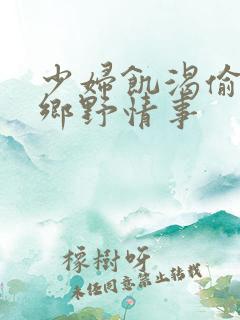 少婦飢渴偷
鄉野情事
橡樹呀
未任同意禁止转载